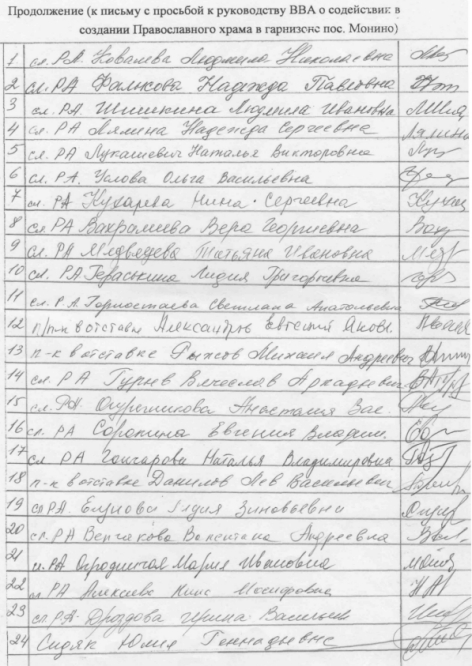 Продолжение (к письму с просьбой к руководству ВВА о содействии в
создании Православного храма в гарнизоне пос. Монино)
1 сл. РА Ковалева Людмила Николаевна
2 сл. РА Фалькова Надежда Павловна
3 сл. РА Шишкина Людмила Ивановна
4 сл. РА Лялина Надежда Сергеевна Лялина
5 сл. РА Лукашевич Наталья Викторовна
6 сл. РА. Услова Ольга Васильевна
7 сл. РА Кухарева Нина Сергеевна
8 сл РА Вахромеева Вера Георгиевна
9 сл. РА Медведева Татьяна Ивановна
10 сл. РА Гераськина Лидия Григорьевна
11 сл. Р.А. Горностаева Светлана Анатольевна
12 п/п-к в отставке Александров Евгений Яковл.
13 п-к в отставке Рыжов Михаил Андреевич
14 сл. РА Гурьев Вячеслав Аркадьевич
15 сл. РА Анастасия Вас.
16 сл. РА Сорокина Евгения Владим.
17 сл РА Гончарова Наталья Владимировна
18 п-к в отставке Данилов Лев Васильевич
19 сл РА. Лидия Зиновьевна
20 сл. РА Валентина Андреевна
21 сл. РА Мария Ивановна
22 сл РА Алексеева
23 сл РА Дроздова Ирина
24 Сидяк Юлия Геннадьевна